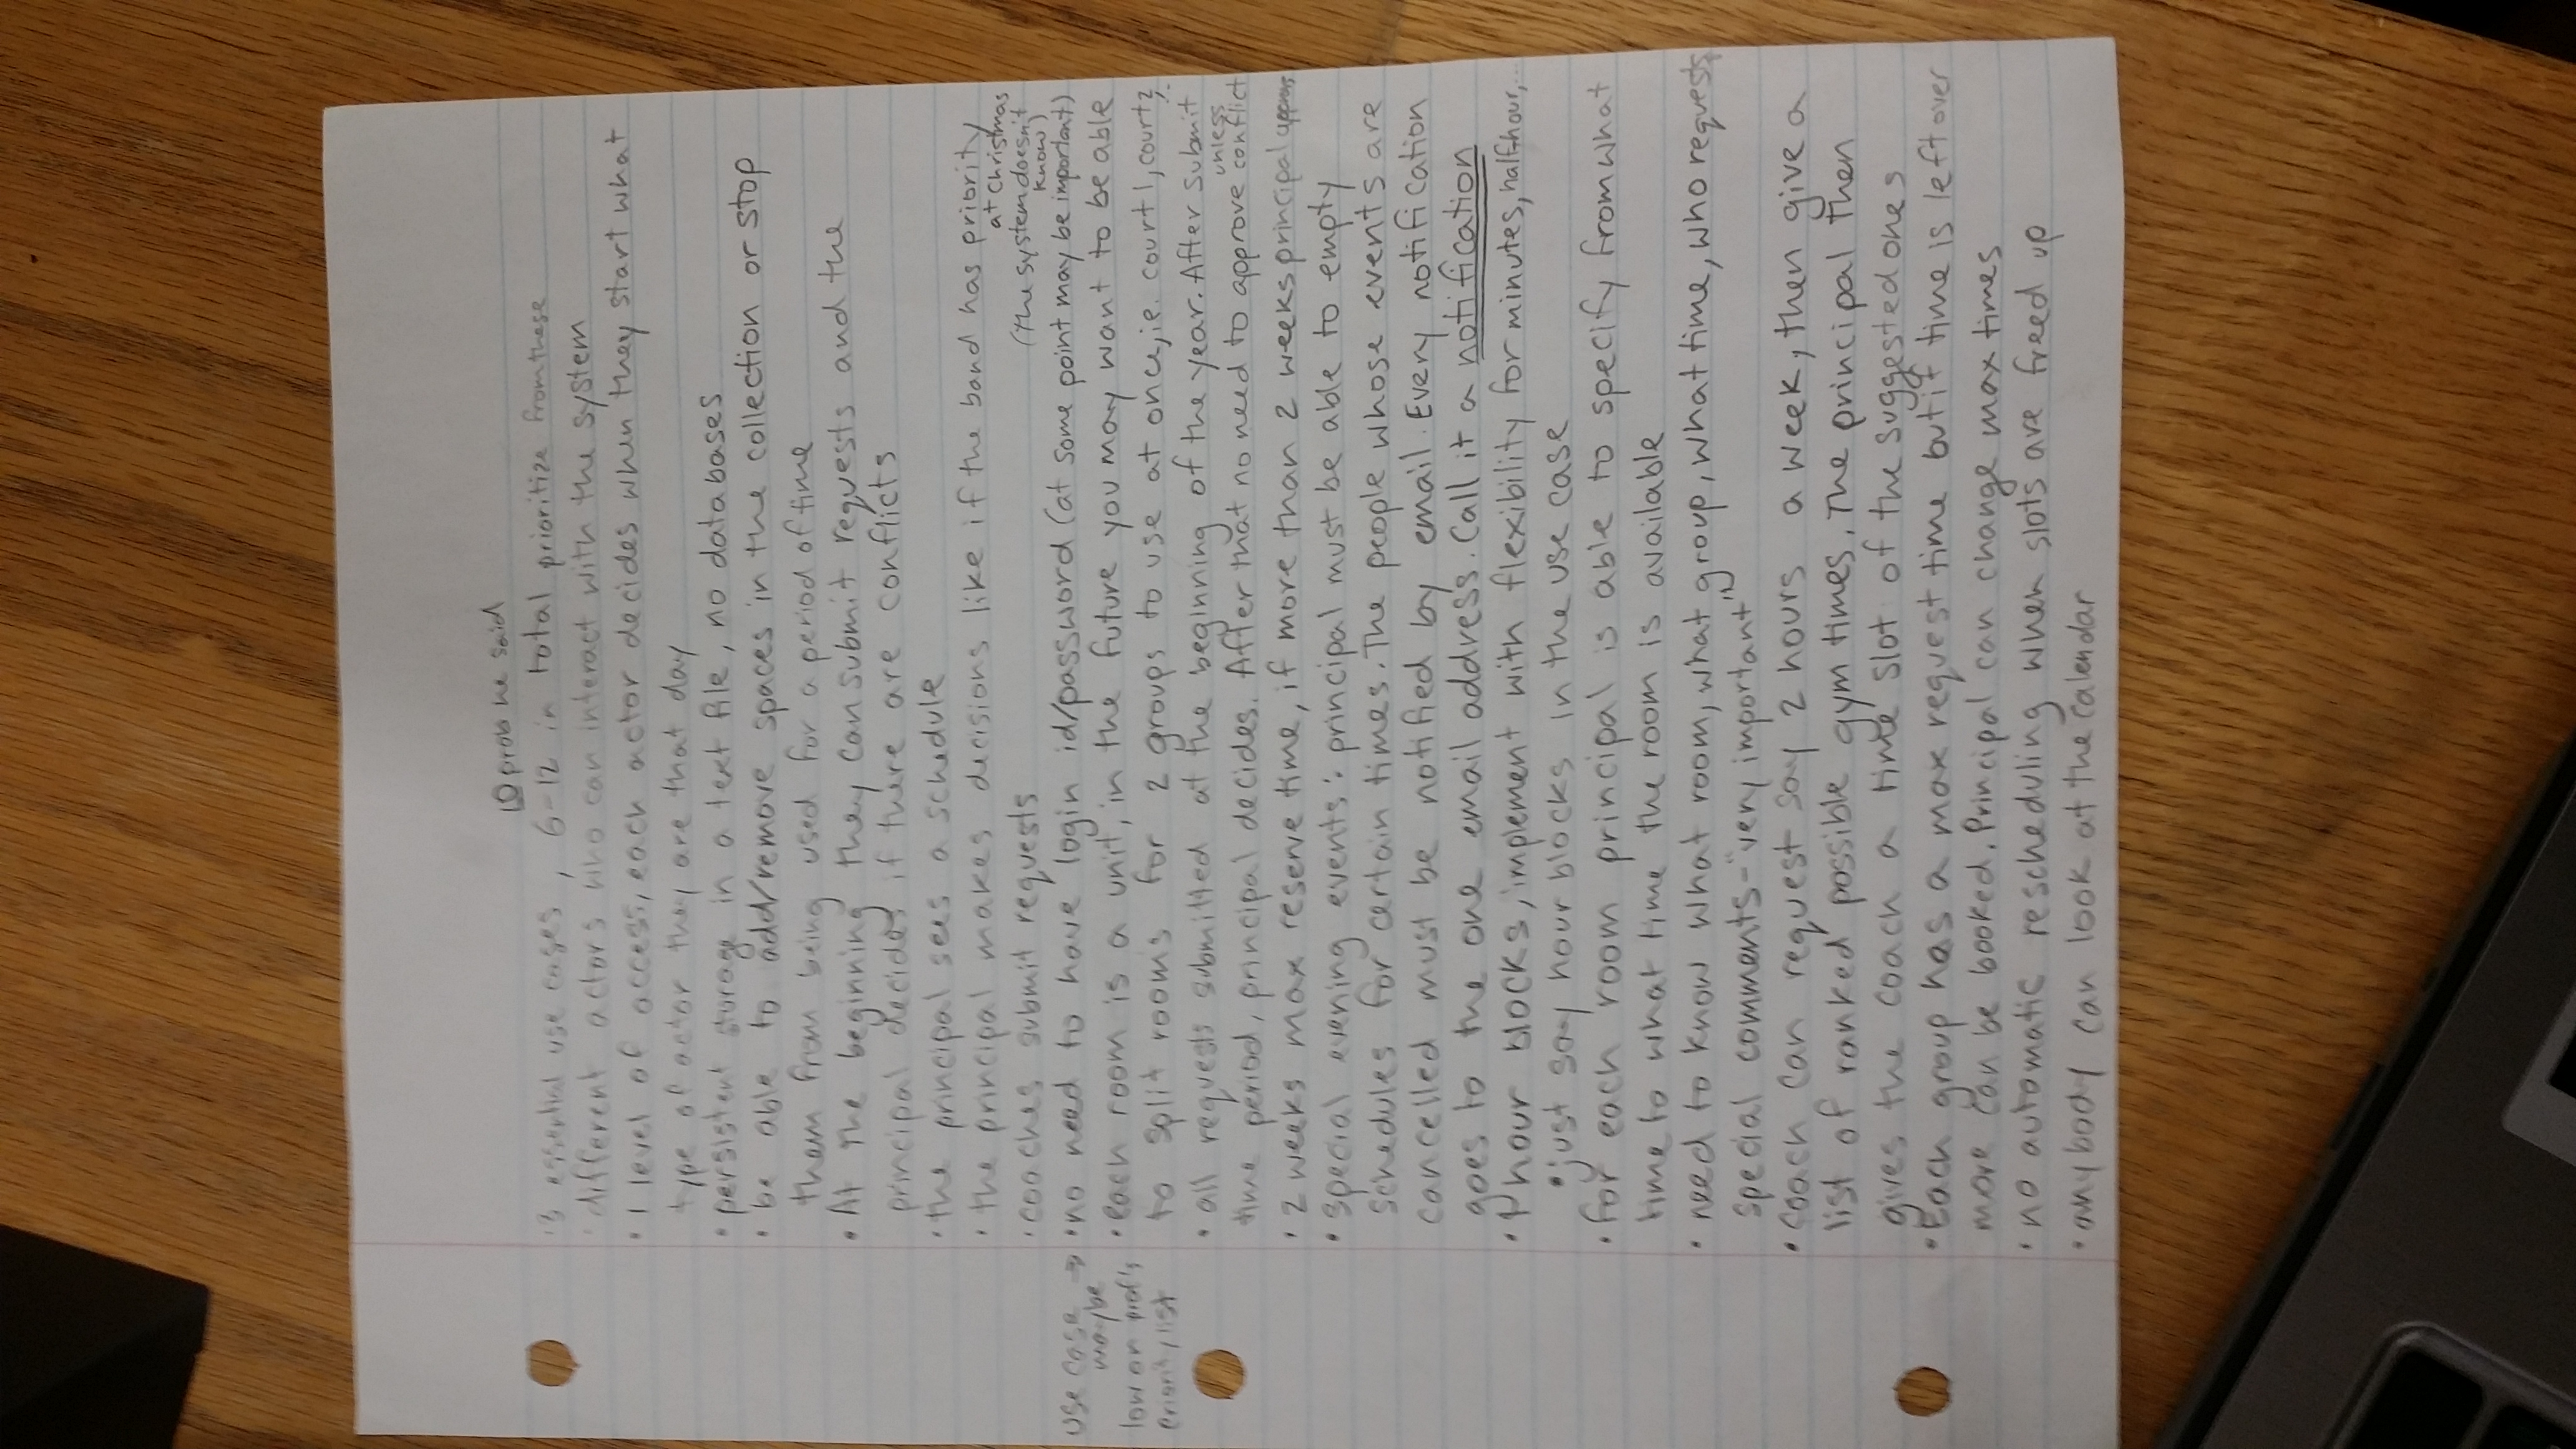 10 prob he said
· 3 essential use cases, 6-12 in total prioritize from these
· different actors who can interact with the system
· 1 level of access, each actor decides when they start what
type of actor they are that day
· persistent storage in a text file, no databases
· be able to add/remove spaces in the collection or stop
them from being used for a period of time
· At the beginning they can submit requests and the
principal decides if there are conflicts
· the principal sees a schedule
· the principal makes decisions like if the band has priority
at Christmas
· coaches submit requests (the system doesn't
know)
use case → · no need to have login id/password (at some point may be important)
maybe
low on prof's
priority list
· each room is a unit, in the future you may want to be able
to split rooms for 2 groups to use at once, ie. court 1, court 2
· all requests submitted at the beginning of the year. After submit
time period, principal decides. After that no need to approve unless conflict
· 2 weeks max reserve time, if more than 2 weeks principal approves
· special evening events: principal must be able to empty
schedules for certain times. The people whose events are
cancelled must be notified by email. Every notification
goes to the one email address. Call it a notification
· 1 hour blocks, implement with flexibility for minutes, half-hour,...
· just say hour blocks in the use case
· for each room principal is able to specify from what
time to what time the room is available
· need to know what room, what group, what time, who requests,
special comments - "very important"
· coach can request say 2 hours a week, then give a
list of ranked possible gym times. The principal then
gives the coach a time slot of the suggested ones
· Each group has a max request time but if time is left over
more can be booked. Principal can change max times
· no automatic rescheduling when slots are freed up
· anybody can look at the calendar